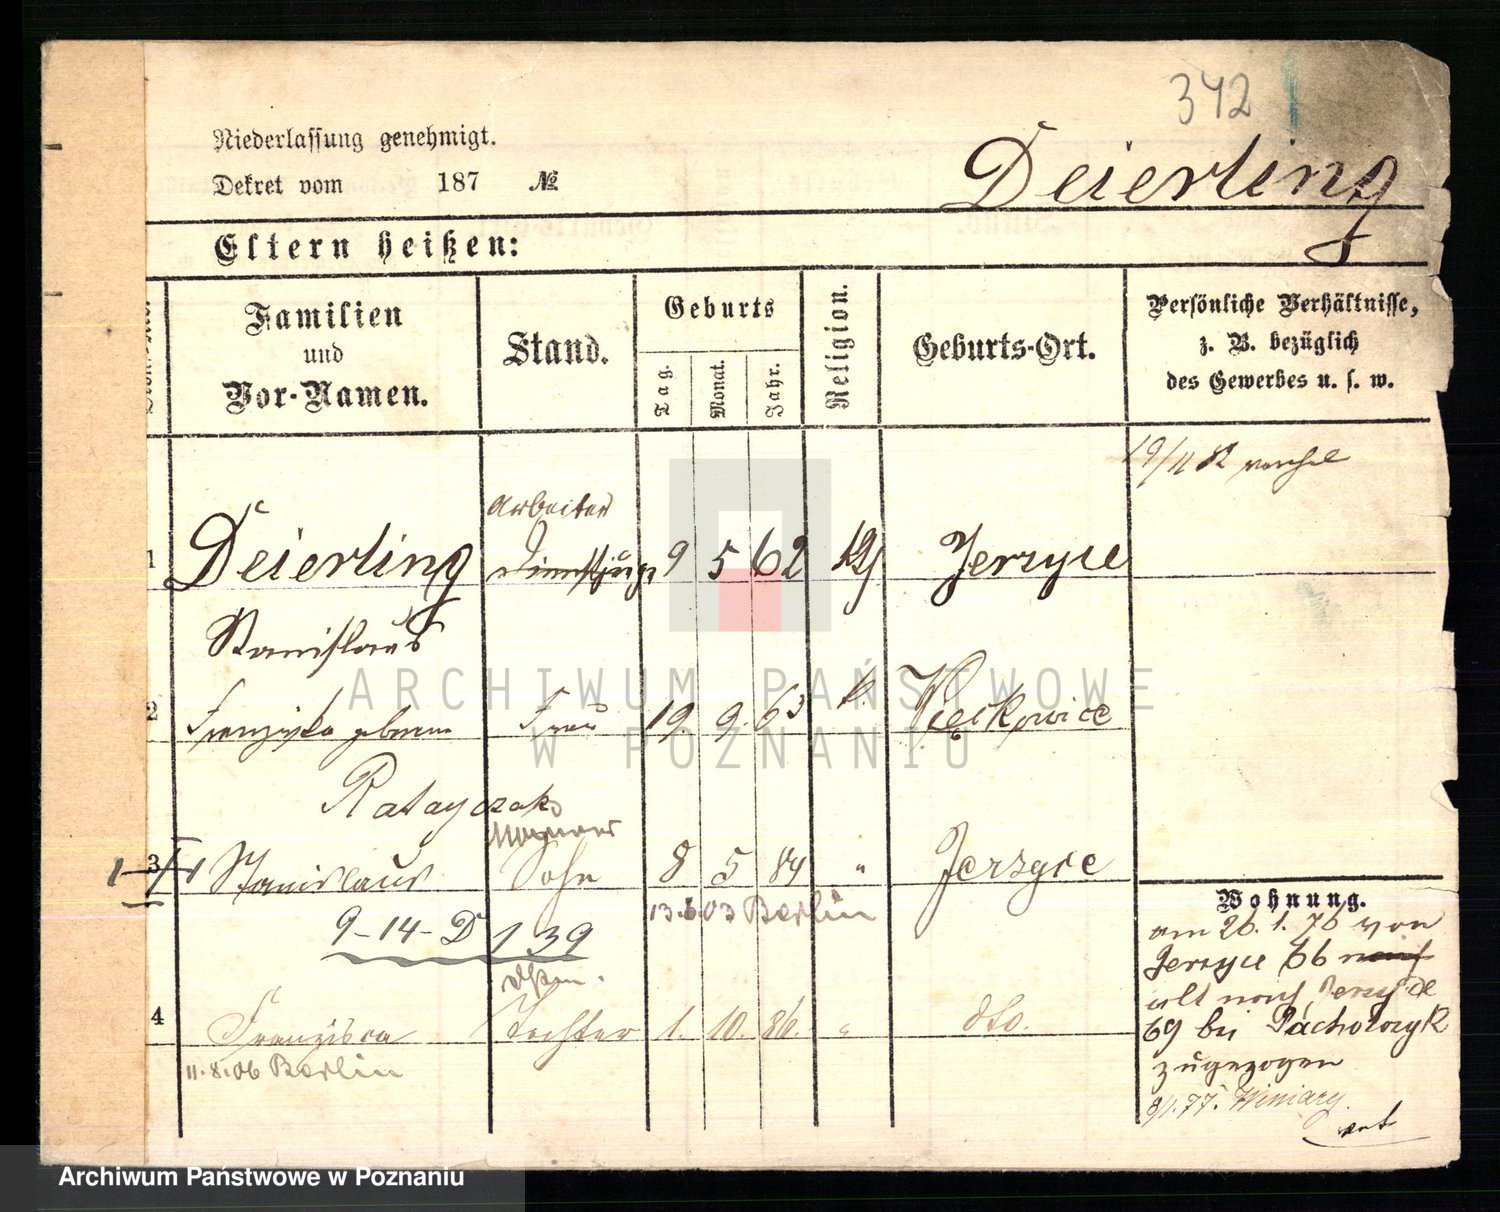 342
Niederlassung genehmigt.
Dekret vom 187 №
Deierling
Eltern heißen:
Familien und Vor-Namen.
Stand.
Geburts
Tag. Monat. Jahr.
Religion.
Geburts-Ort.
Persönliche Verhältnisse, z. B. bezüglich des Gewerbes u. s. w.
19/11 82
Arbeiter
1 Deierling 9 5 62 Jerzyce
Stanislaus
2 Franziska geborene Frau 19 9. 63 k. Więckowice
Ratayczak
3 Stanislaus Sohn 8 5 84 " Jerzyce
13.6.03 Berlin
9-14-D 139
4 Franzisca Tochter 1. 10. 86. " dto.
11.8.06 Berlin
Wohnung.
am 26.1.76 von
Jerzyce 66
Jerzyce
69 bei Pacholczyk
zugezogen
8/1.77. Winiary.
ARCHIWUM PAŃSTWOWE
W POZNANIU
Archiwum Państwowe w Poznaniu